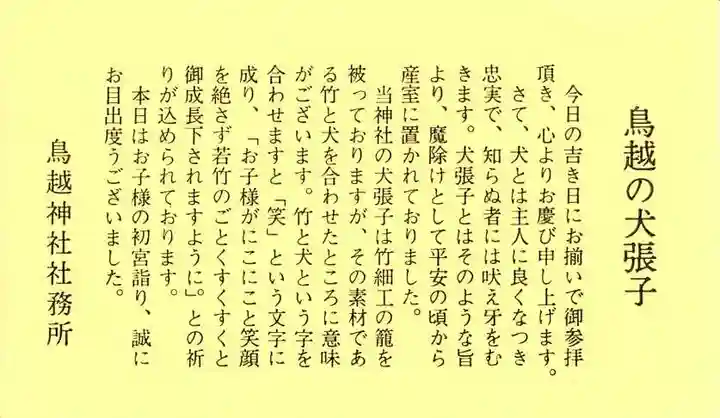 鳥越の犬張子
今日の吉き日にお揃いで御参拝
頂き、心よりお慶び申し上げます。
さて、犬とは主人に良くなつき
忠実で、知らぬ者には吠え牙をむ
きます。犬張子とはそのような旨
より、魔除けとして平安の頃から
産室に置かれておりました。
当神社の犬張子は竹細工の籠を
被っておりますが、その素材であ
る竹と犬を合わせたところに意味
がございます。竹と犬という字を
合わせますと「笑」という文字に
成り、「お子様がにこにこと笑顔
を絶さず若竹のごとくすくすくと
御成長下されますように」。との祈
りが込められております。
本日はお子様の初宮詣り、誠に
お目出度うございました。
鳥越神社社務所